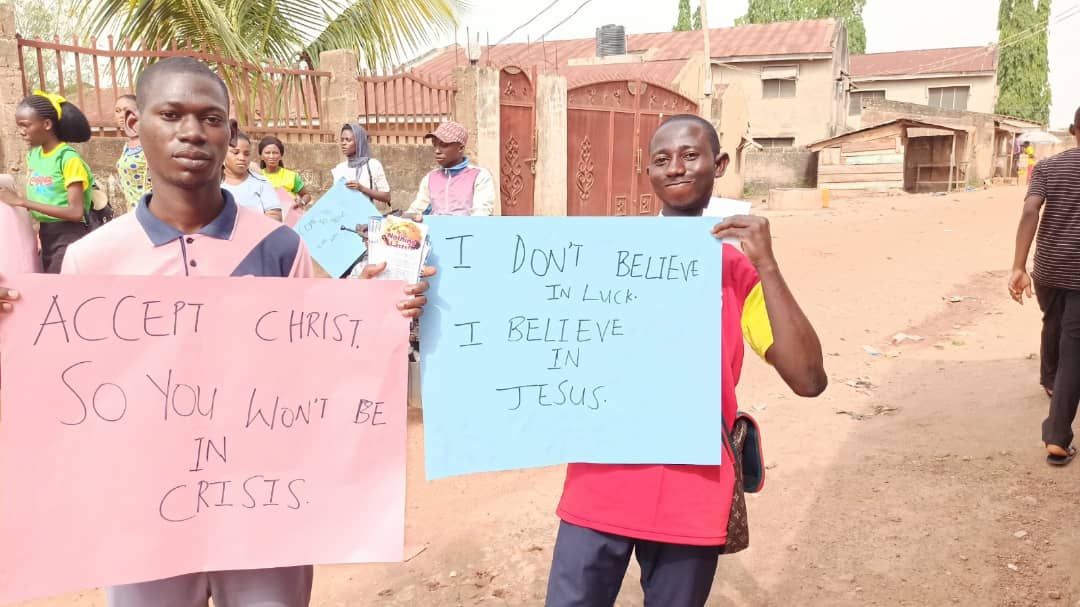 ACCEPT CHRIST.
SO YOU WON'T BE
IN
CRISIS.
I DON'T BELIEVE
IN LUCK.
I BELIEVE
IN
JESUS.